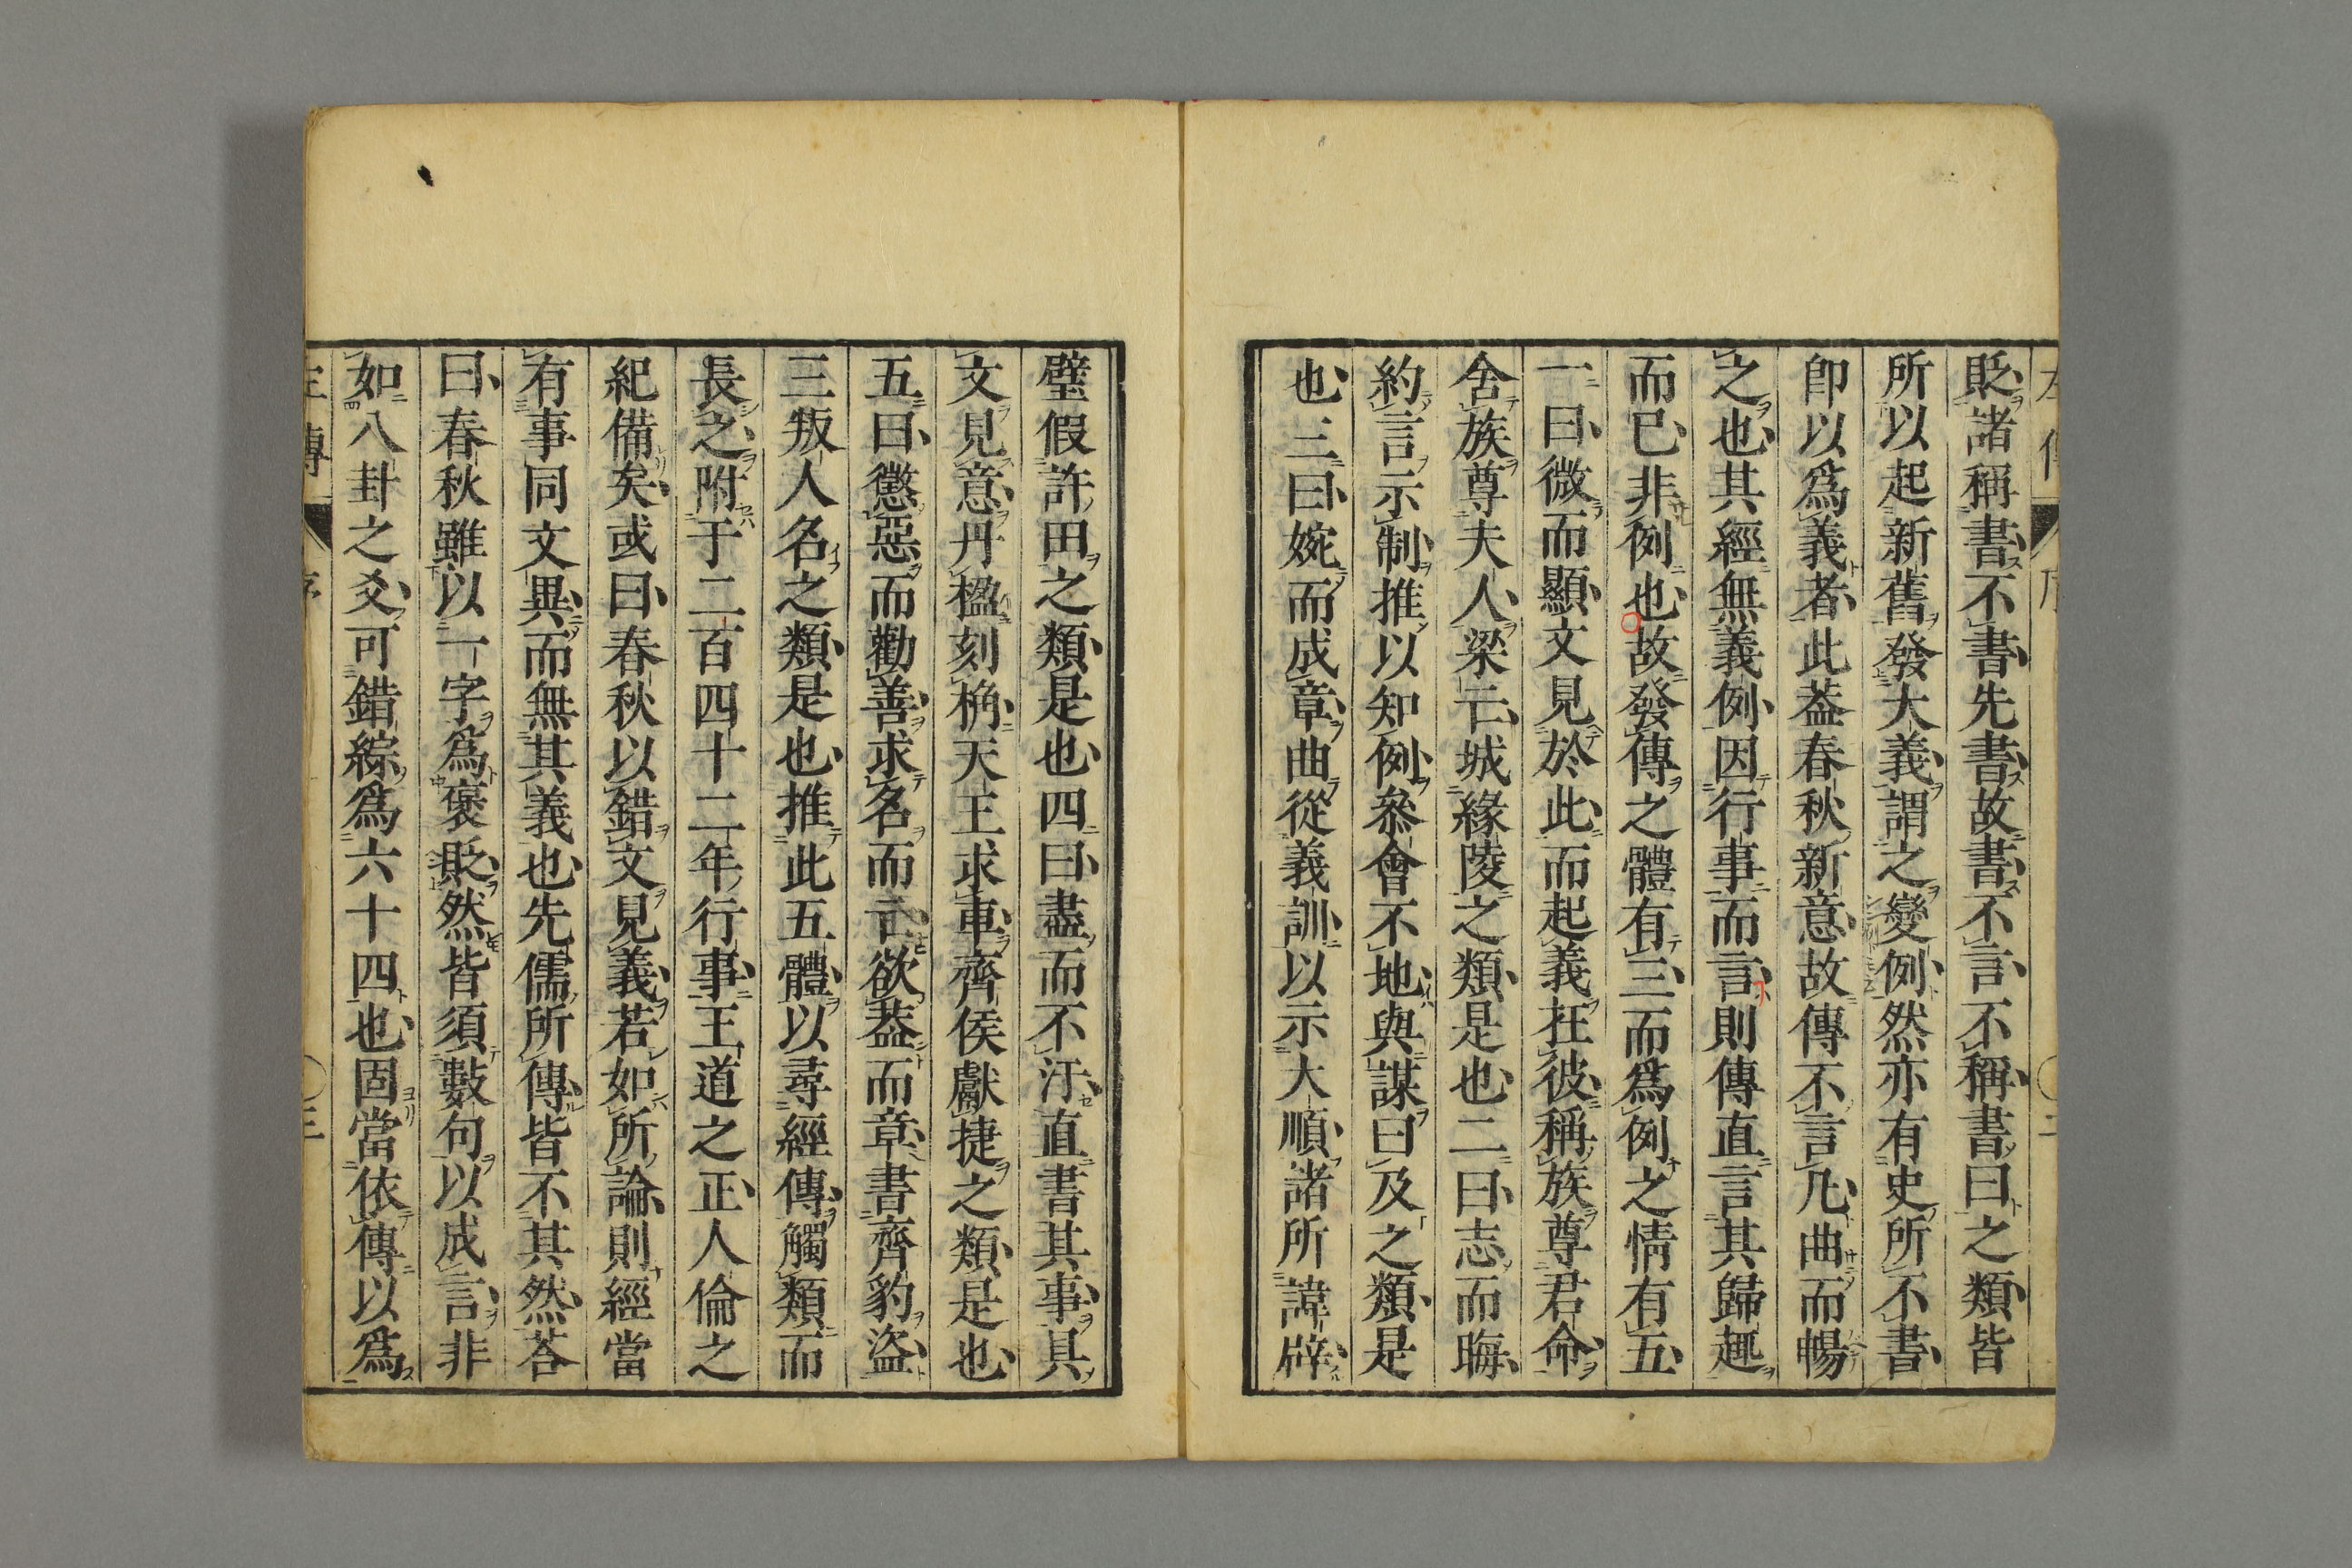 貶諸稱書不書先書故書不言不稱書曰之類皆
所以起新舊發大義謂之變例然亦有史所不書
卽以爲義者此葢春秋新意故傳不言凡曲而暢
之也其經無義例因行事而言則傳直言其歸趣
而已非例也故發傳之體有三而爲例之情有五
一曰微而顯文見於此而起義在彼稱族尊君命
舍族尊夫人梁亡城緣陵之類是也二曰志而晦
約言示制推以知例參會不地與謀曰及之類是
也三曰婉而成章曲從義訓以示大順諸所諱辟
璧假許田之類是也四曰盡而不汙直書其事具
文見意丹楹刻桷天王求車齊侯獻捷之類是也
五曰懲惡而勸善求名而亡欲葢而章書齊豹盜
三叛人名之類是也推此五體以尋經傳觸類而
長之附于二百四十二年行事王道之正人倫之
紀備矣或曰春秋以錯文見義若如所論則經當
有事同文異而無其義也先儒所傳皆不其然荅
曰春秋雖以一字爲褒貶然皆須數句以成言非
如八卦之爻可錯綜爲六十四也固當依傳以爲